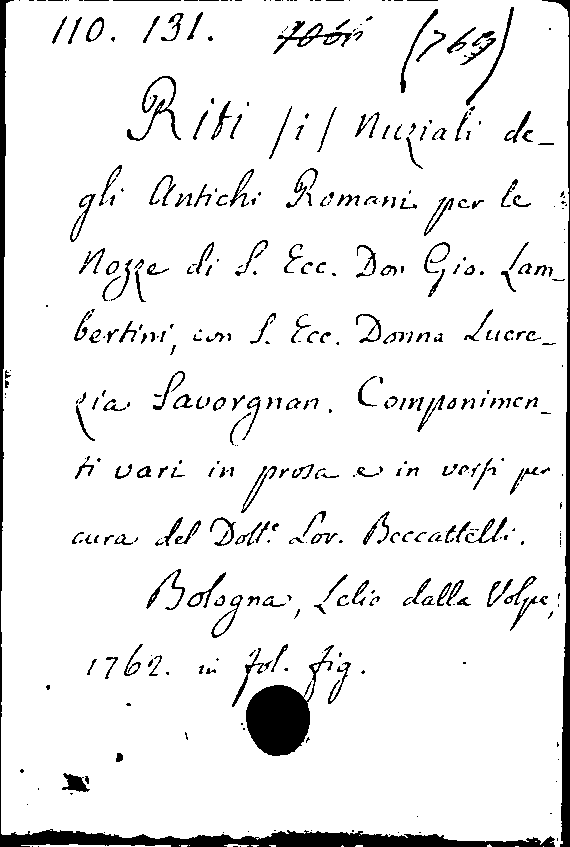 110. 131. (769)
Riti /i/ Nuziali de-
gli Antichi Romani per le
Nozze di S. Ecc. Don Gio. Lam-
bertini, con S. Ecc. Donna Lucre-
zia Savorgnan. Componimen-
ti vari in prosa e in versi per
cura del Dott.e Lor. Beccattelli.
Bologna, Lelio dalla Volpe,
1762. in fol. fig.